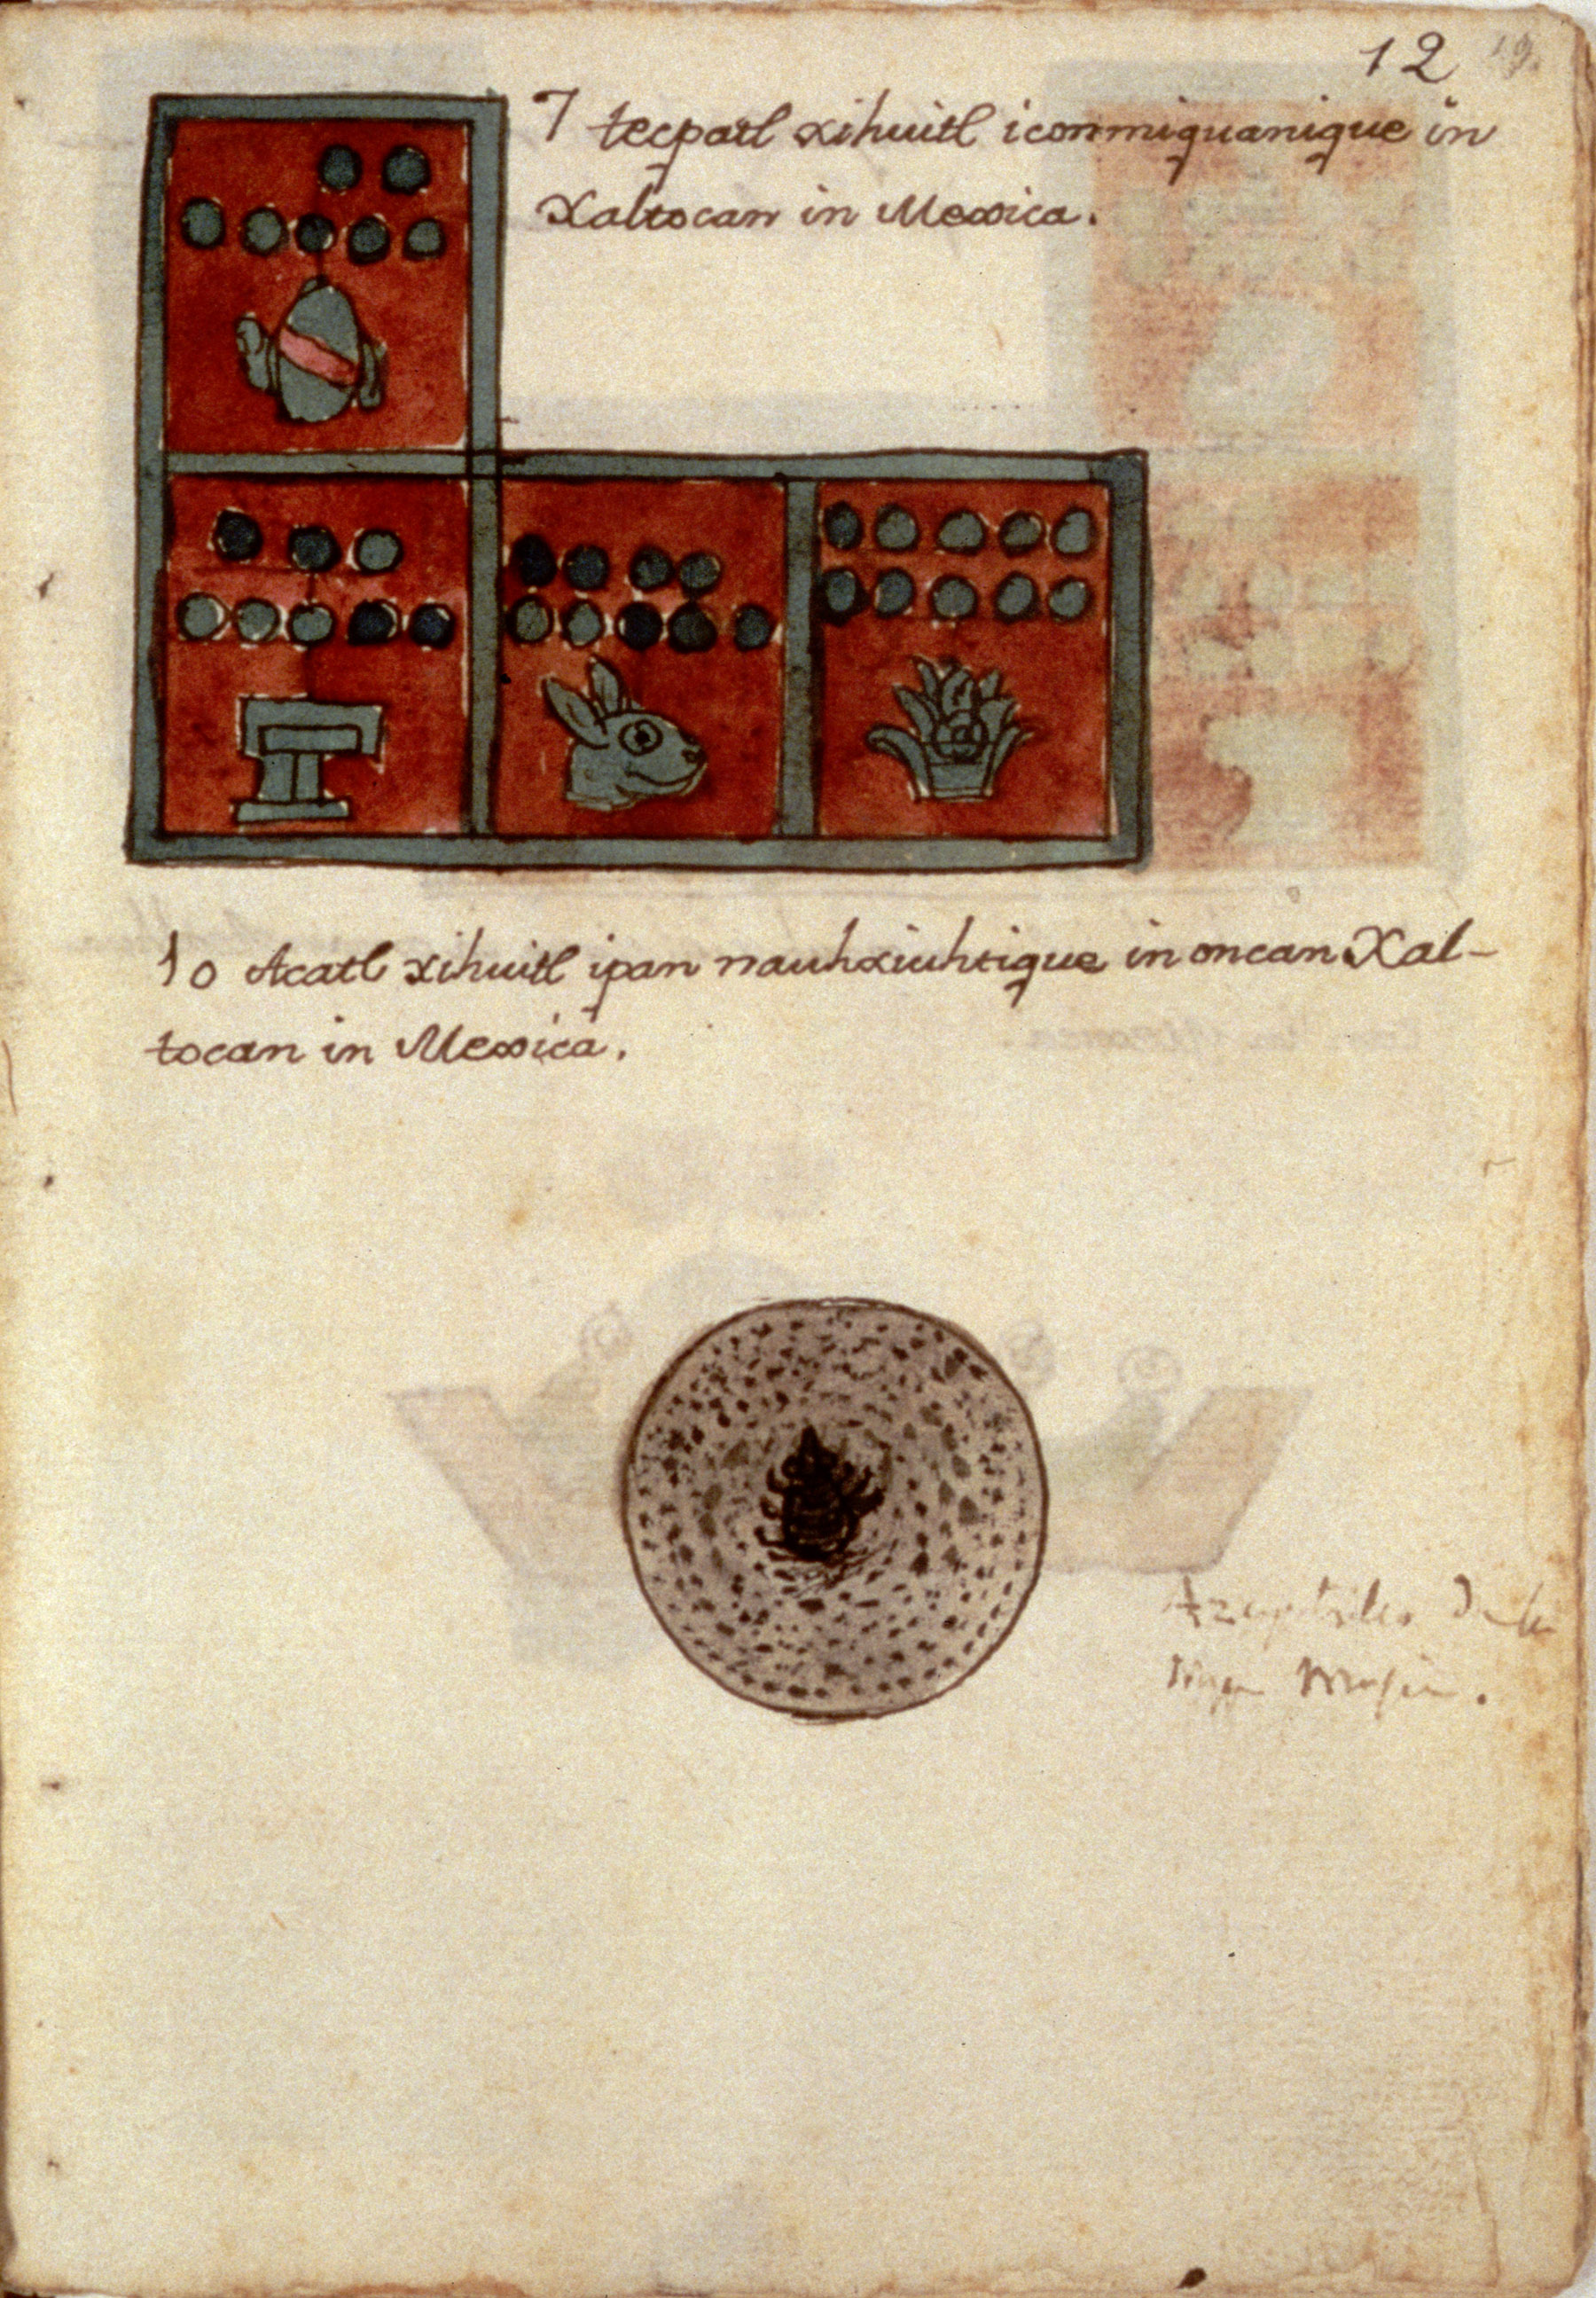 12
7 tecpatl xihuitl iconmiquanique in
Xaltocan in Mexica.
10 Acatl xihuitl ipan nauhxiuhtique in oncan Xal-
tocan in Mexica.